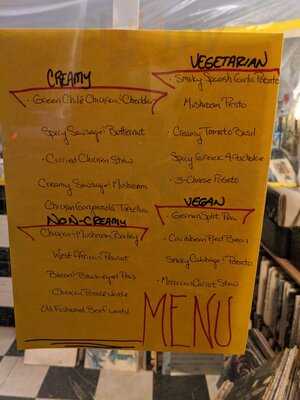 CREAMY
- Green Chile Chicken & Cheddar
Spicy Sausage & Butternut
- Curried Chicken Stew
Creamy Sausage & Mushroom
Chicken Tortilla
NON-CREAMY
Chicken & Mushroom Barley
West African Peanut
Bacon
Chicken Pot
Old Fashioned Beef
VEGETARIAN
- Smoky Spanish Garlic Potato
Mushroom Pesto
Creamy Tomato Basil
Spicy Garlic & Artichoke
- 3-Cheese Potato
VEGAN
- German Split Pea
Caribbean Red Bean
Smoky Cabbage & Potato
Moroccan Carrot Stew
MENU